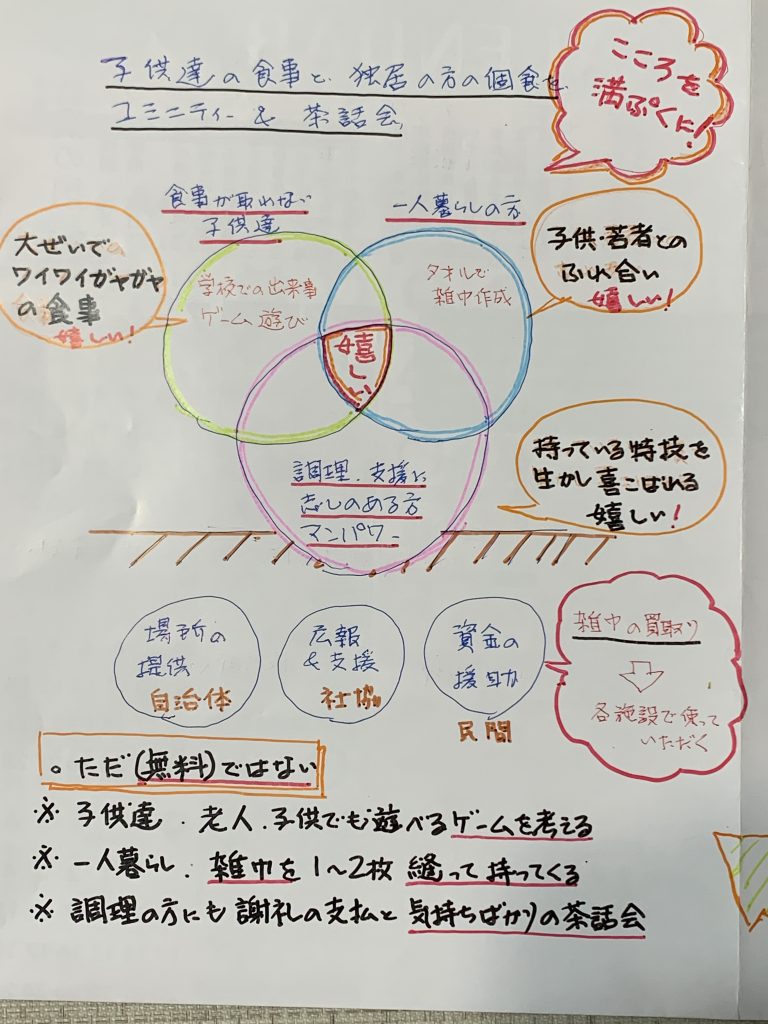 子供達の食事と、独居の方の個食を
コミニティー & 茶話会
こころを
満ぷくに!
食事が取れない
子供達
一人暮らしの方
大ぜいでの
ワイワイガヤガヤ
の食事
嬉しい!
学校での出来事
ゲーム遊び
タオルで
雑巾作成
子供・若者との
ふれ合い
嬉しい!
嬉しい
調理・支援に
志しのある方
マンパワー
持っている特技を
生かし喜こばれる
嬉しい!
場所の
提供
自治体
広報
&支援
社協
資金の
援助
民間
雑巾の買取り
各施設で使って
いただく
。ただ(無料)ではない
※ 子供達 . 老人.子供でも遊べるゲームを考える
※ 一人暮らし. 雑巾を1〜2枚 縫って持ってくる
※ 調理の方にも謝礼の支払と 気持ちばかりの茶話会